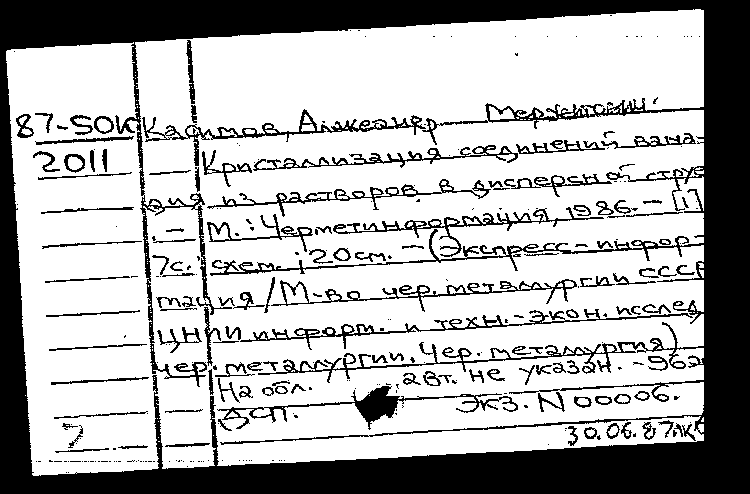 87-SOK Кадимов, Александр
2011 Кристаллизация соединений вана-
дия из растворов в дисперсной струе
. - М. : Черметинформация, 1986. - [1]
7с. : схем. ; 20 см. - (Экспресс-инфор-
мация / М-во чер. металлургии СССР
ЦНИИ информ. и техн.-экон. исслед
чер. металлургии. Чер. металлургия)
На обл. авт. не указан. - 962
ДСП. Экз. N 00006.
30.06.87